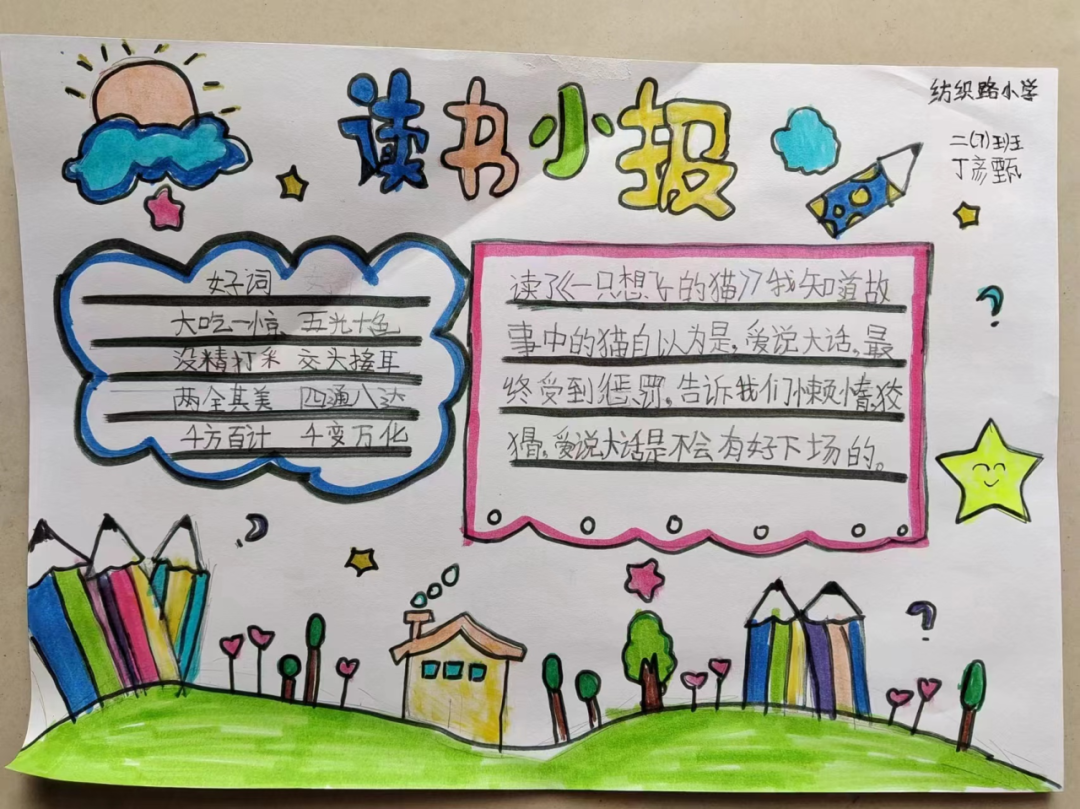 读书小报
纺织路小学
二(7)班
丁彦甄
好词
大吃一惊 五光十色
没精打采 交头接耳
两全其美 四通八达
千方百计 千变万化
读了《一只想飞的猫》我知道故
事中的猫自以为是,爱说大话,最
终受到惩罚。告诉我们懒惰,狡
猾,爱说大话是不会有好下场的。